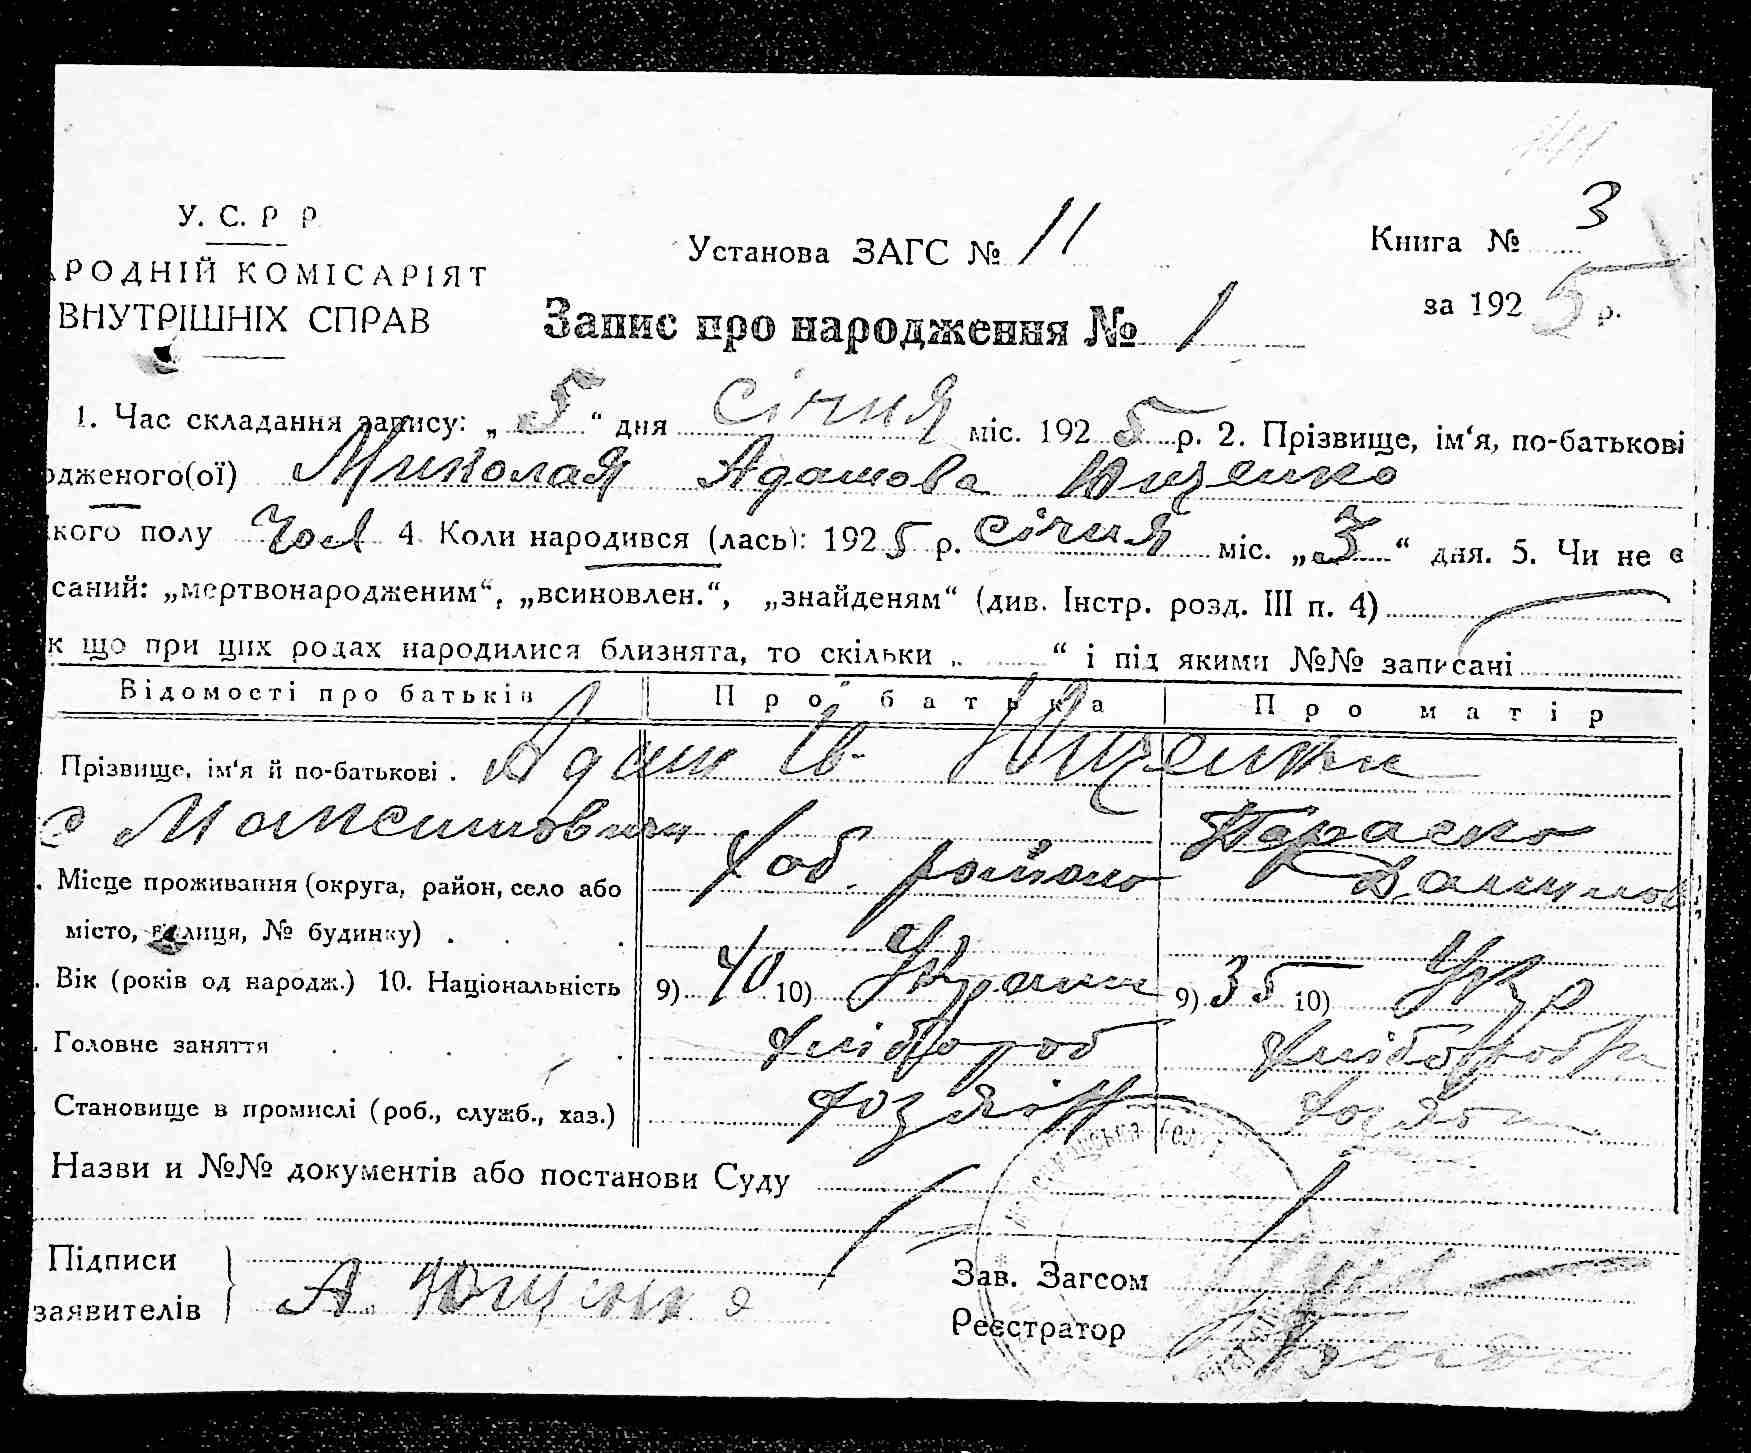 У. С. Р Р
РОДНІЙ КОМІСАРІЯТ
ВНУТРІШНІХ СПРАВ
Установа ЗАГС № 11
Книга № 3
за 1925 р.
Запис про народження № 1
1. Час складання запису: „5“ дня січня міс. 1925 р. 2. Прізвище, ім‘я, по-батькові
одженого(ої) Миколая Адамова Ющенко
кого полу Чол 4. Коли народився (лась): 1925 р. січня міс. „3“ дня. 5. Чи не є
саний: „мертвонародженим“, „всиновлен.“, „знайденям“ (див. Інстр. розд. III п. 4)
к що при цих родах народилися близнята, то скільки „ “ і під якими №№ записані
Відомості про батьків Про батька Про матір
Прізвище, ім‘я й по-батькові . Адам Ів. Ющенки
с Максимовичи Параска
Місце проживання (округа, район, село або Хоб. району
місто, вулиця, № будинку) . . .
Вік (років од народж.) 10. Національність 9) 40 10) Украин 9) 35 10) Укр
Головне заняття . . . . Хлібороб Хліборобка
Становище в промислі (роб., служб., хаз.) хозяін
Назви и №№ документів або постанови Суду
Підписи
заявителів А. Ющенко
Зав. Загсом
Реєстратор